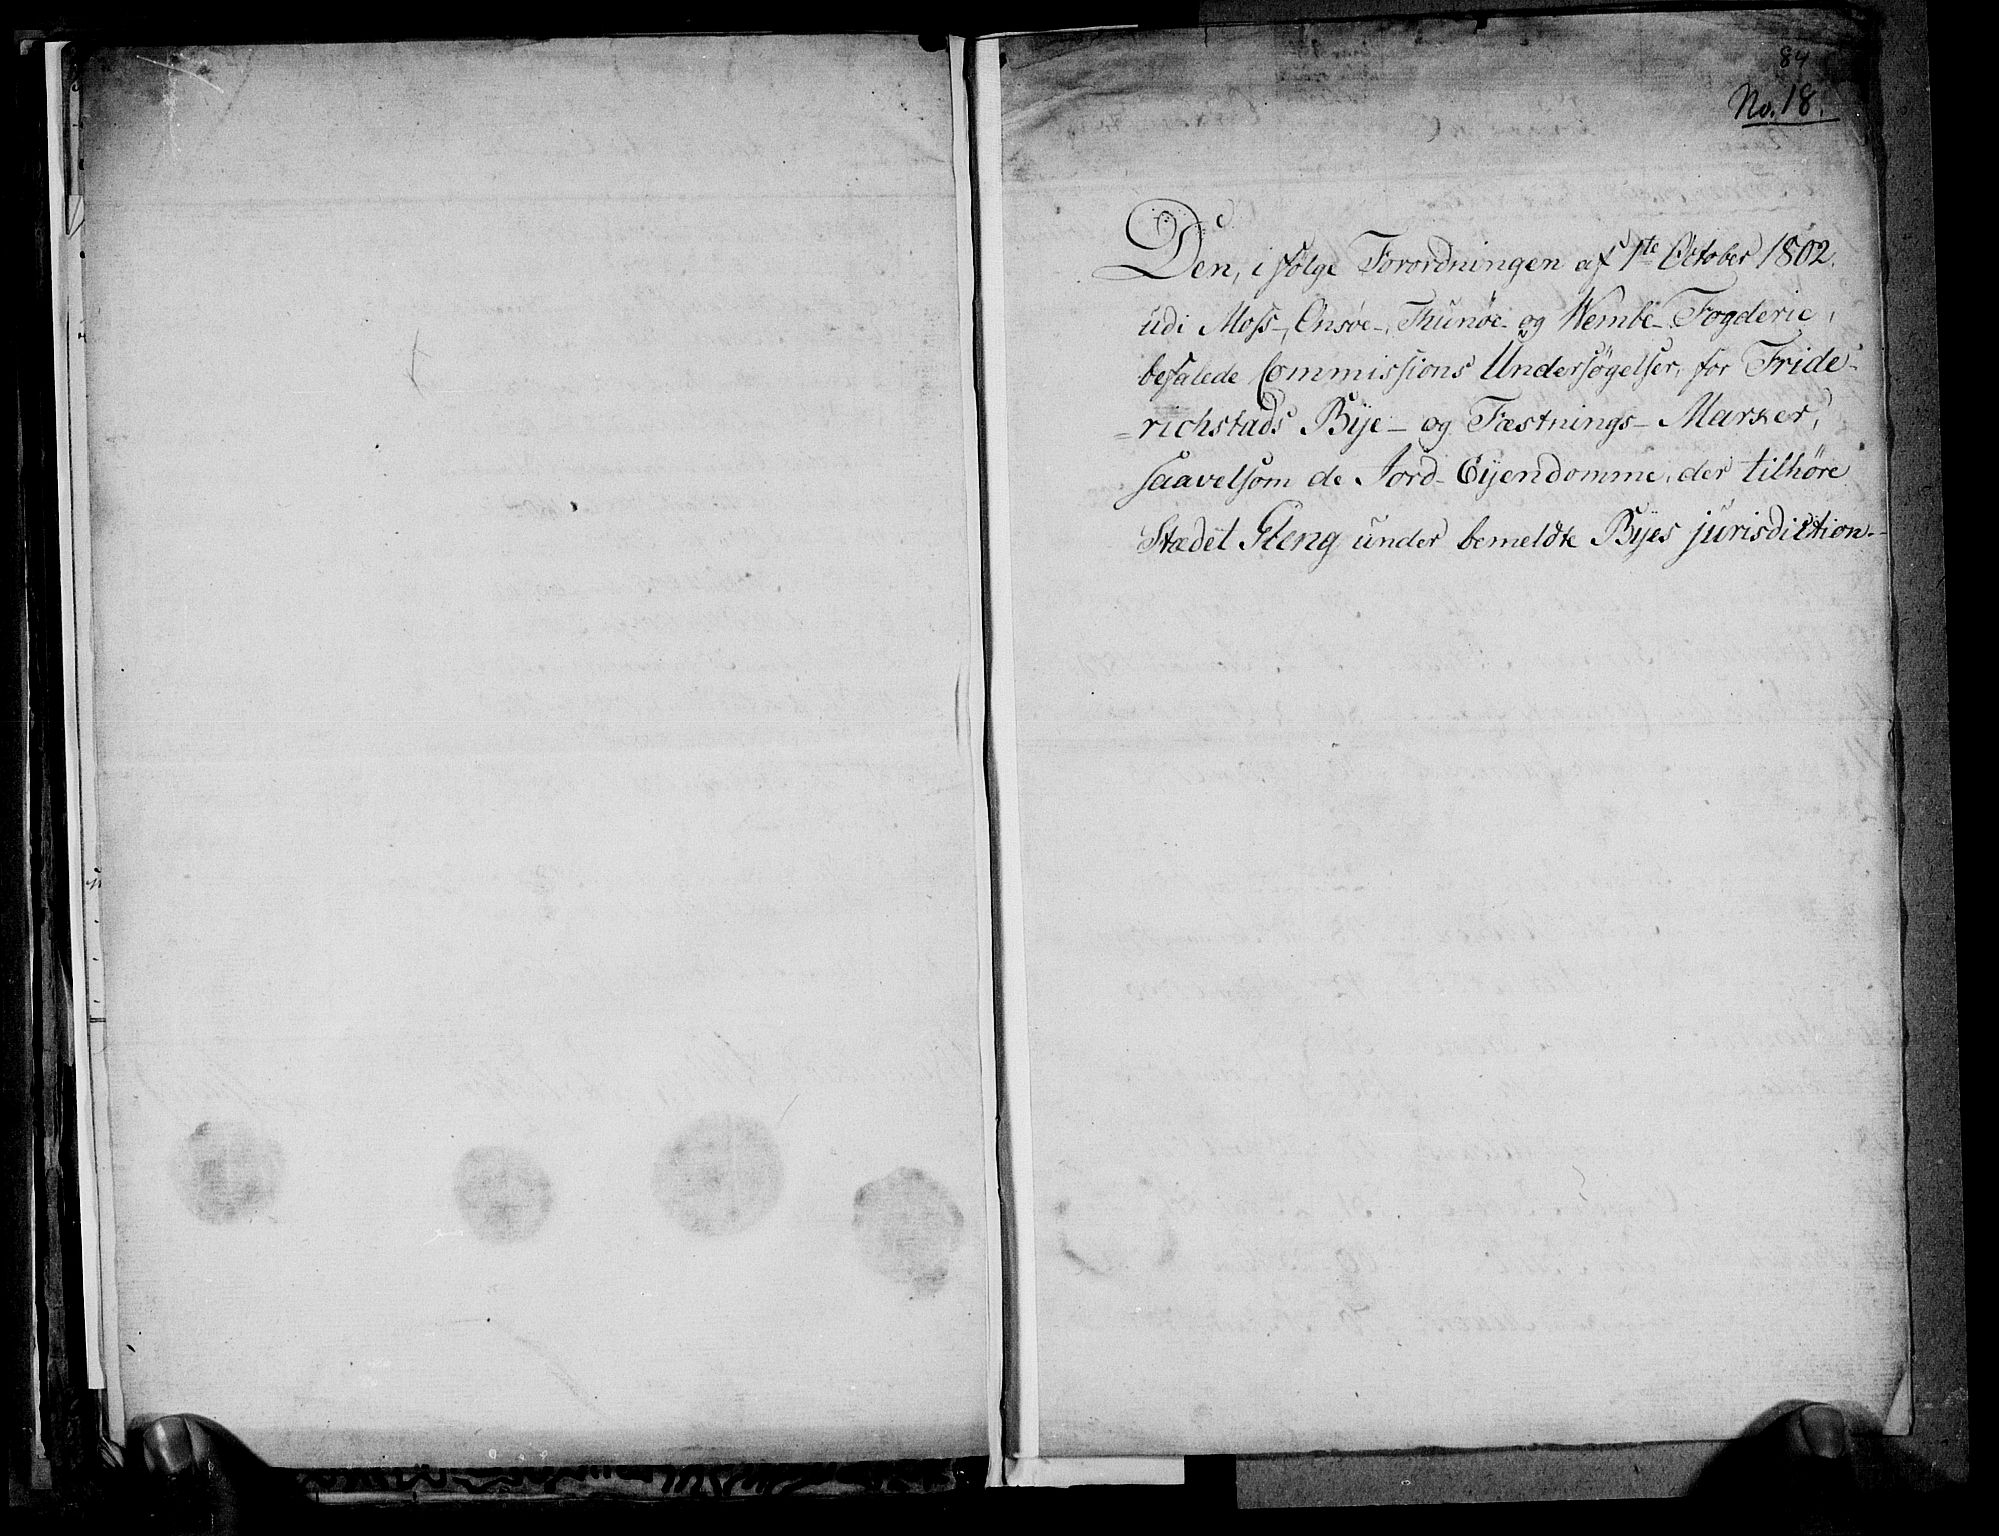 84
No. 18.
Den, i følge Forordningen af 1te October 1802.
udi Moss-, Onsøe-, Thunøe- og Wembe-Fogderie,
befalede Commissions Undersøgelser, for Fride-
=richstads Bye- og Fæstnings-Marker,
saavelsom de Jord-Eyendomme, der tilhøre
Stædet Gleng under bemeldte Byes jurisdiction.-